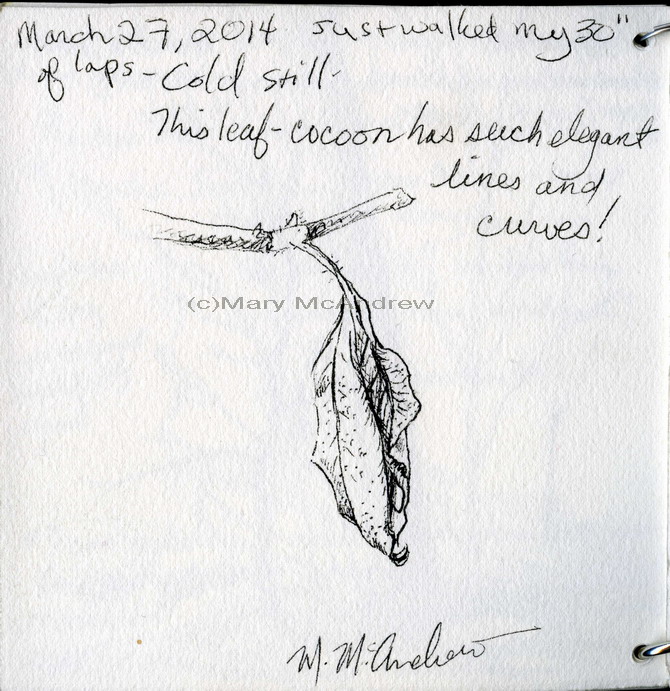 March 27, 2014 Just walked my 30"
of laps - Cold still -
This leaf-cocoon has such elegant
lines and
curves!
(c)Mary McAndrew
M. McAndrew